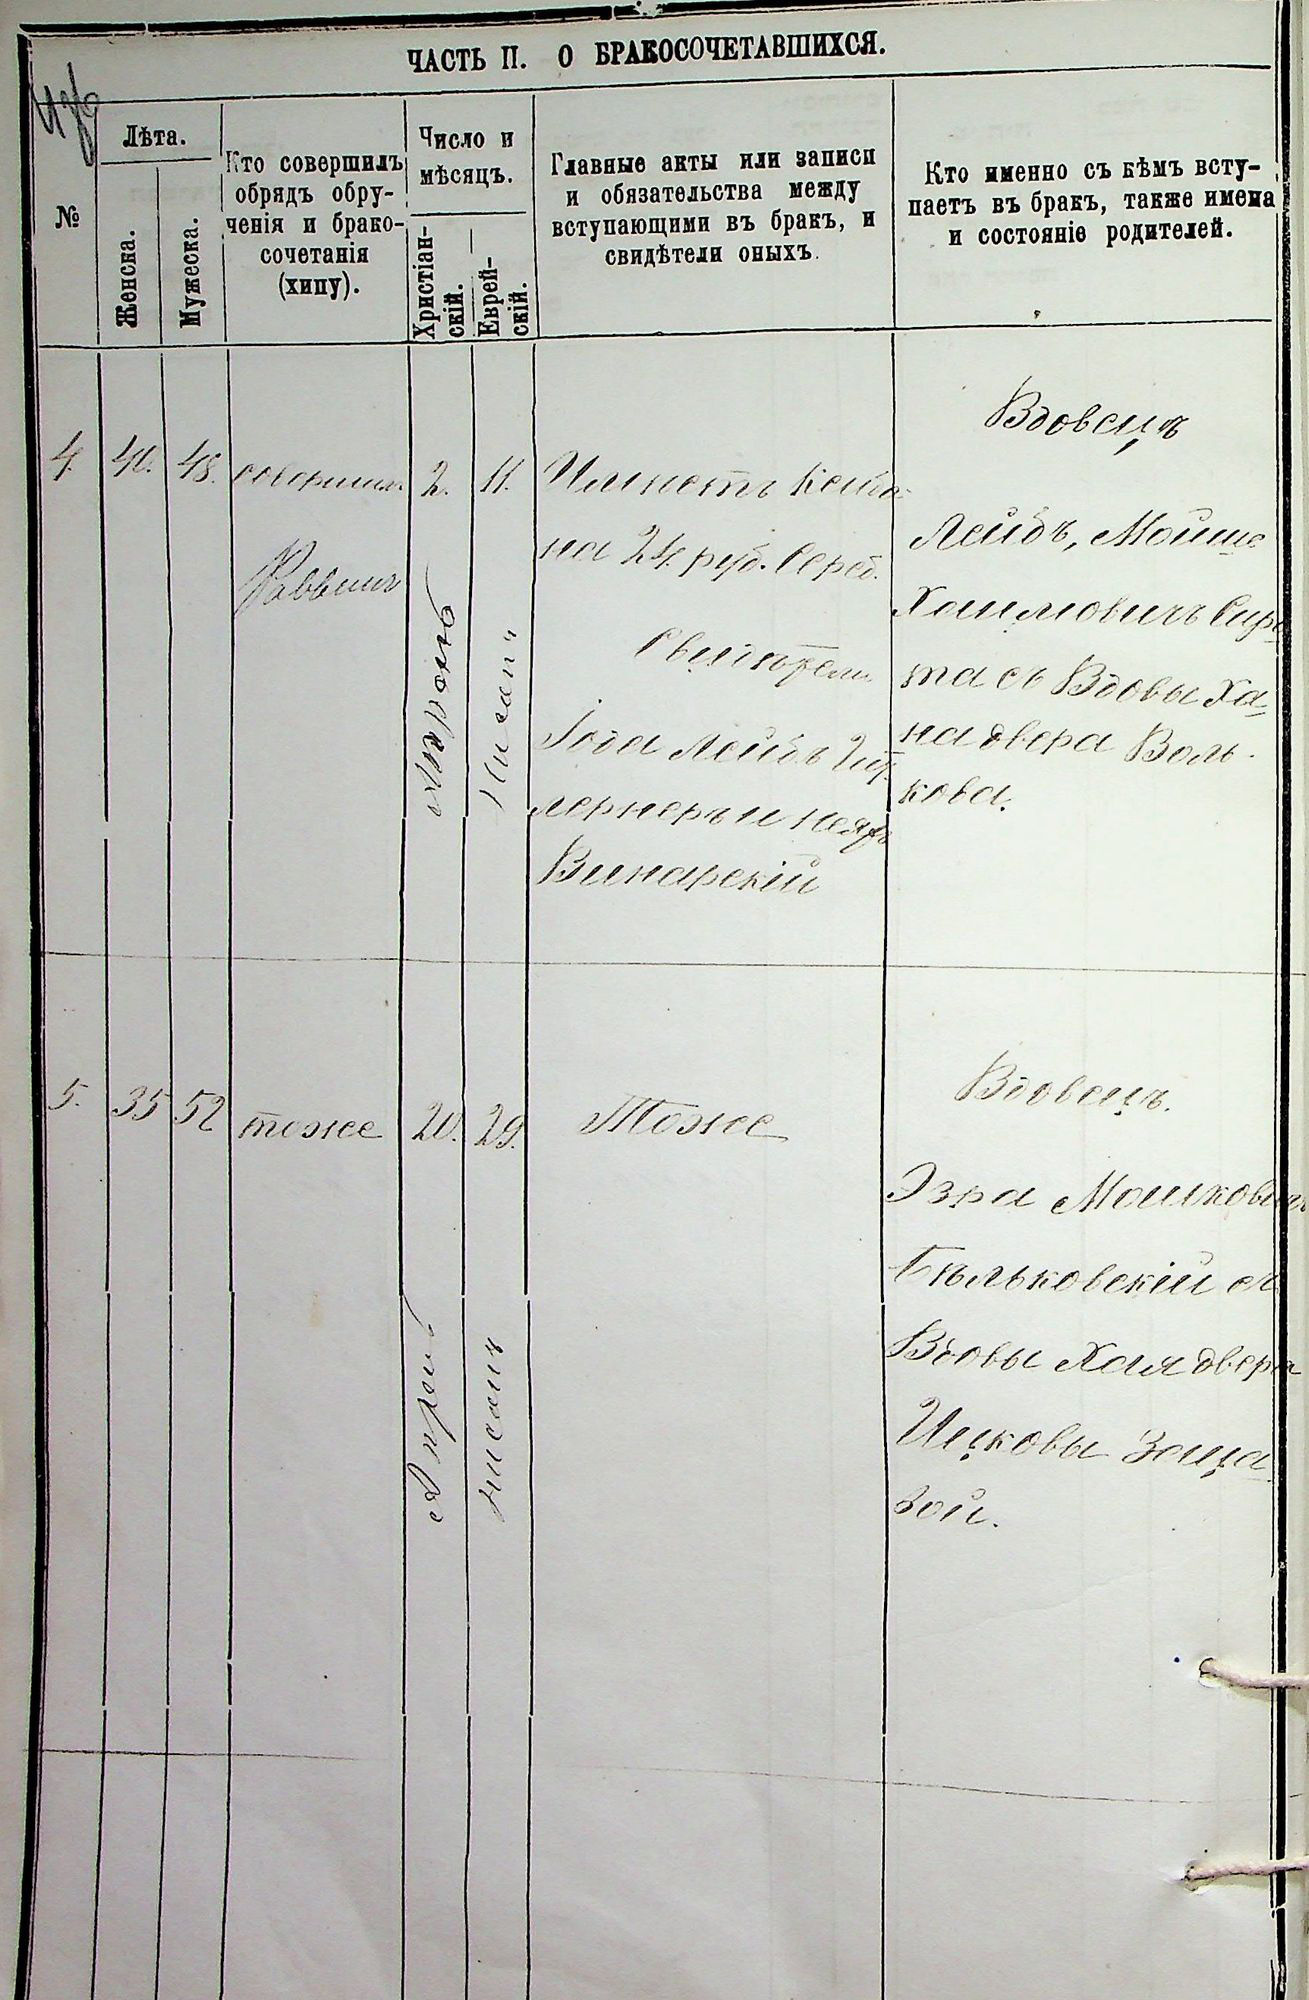 ЧАСТЬ II. О БРАКОСОЧЕТАВШИХСЯ.
№
Лѣта.
Женска.
Мужеска.
Кто совершилъ
обрядъ обру-
ченія и брако-
сочетанія
(хипу).
Число и
мѣсяцъ.
Христіан-
скій.
Еврей-
скій.
Главные акты или записи
и обязательства между
вступающими въ бракъ, и
свидѣтели оныхъ.
Кто именно съ кѣмъ всту-
паетъ въ бракъ, также имена
и состояніе родителей.
4.
40.
48.
совершил.
Раввинъ
2.
Апрель
11.
Нисанъ
на 24. руб. Сереб.
Свидѣтели
Іода Лейбъ
Винарскій
Вдовецъ
Лейбъ, Мойше
Хаимовичъ Сиро
та съ Вдовы Ха-
на двера Воль-
кова.
5.
35
52
тоже
20.
Апрель
29.
нисанъ
Тоже
Вдовецъ.
Эзра Мошковичъ
Бѣльковскій съ
Вдовы Хая двера
Ицковы Заща-
вой.